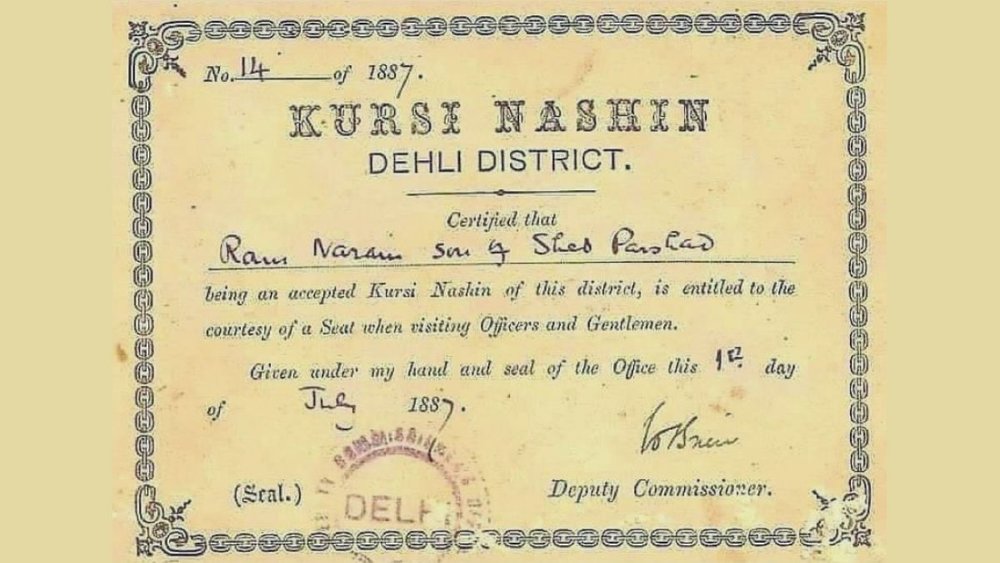 No. 14 of 1887.
KURSI NASHIN
DEHLI DISTRICT.
Certified that
Ram Narain son of Sheo Parshad
being an accepted Kursi Nashin of this district, is entitled to the
courtesy of a Seat when visiting Officers and Gentlemen.
Given under my hand and seal of the Office this 1st day
of July 1887.
(Seal.)
DELHI
Deputy Commissioner.